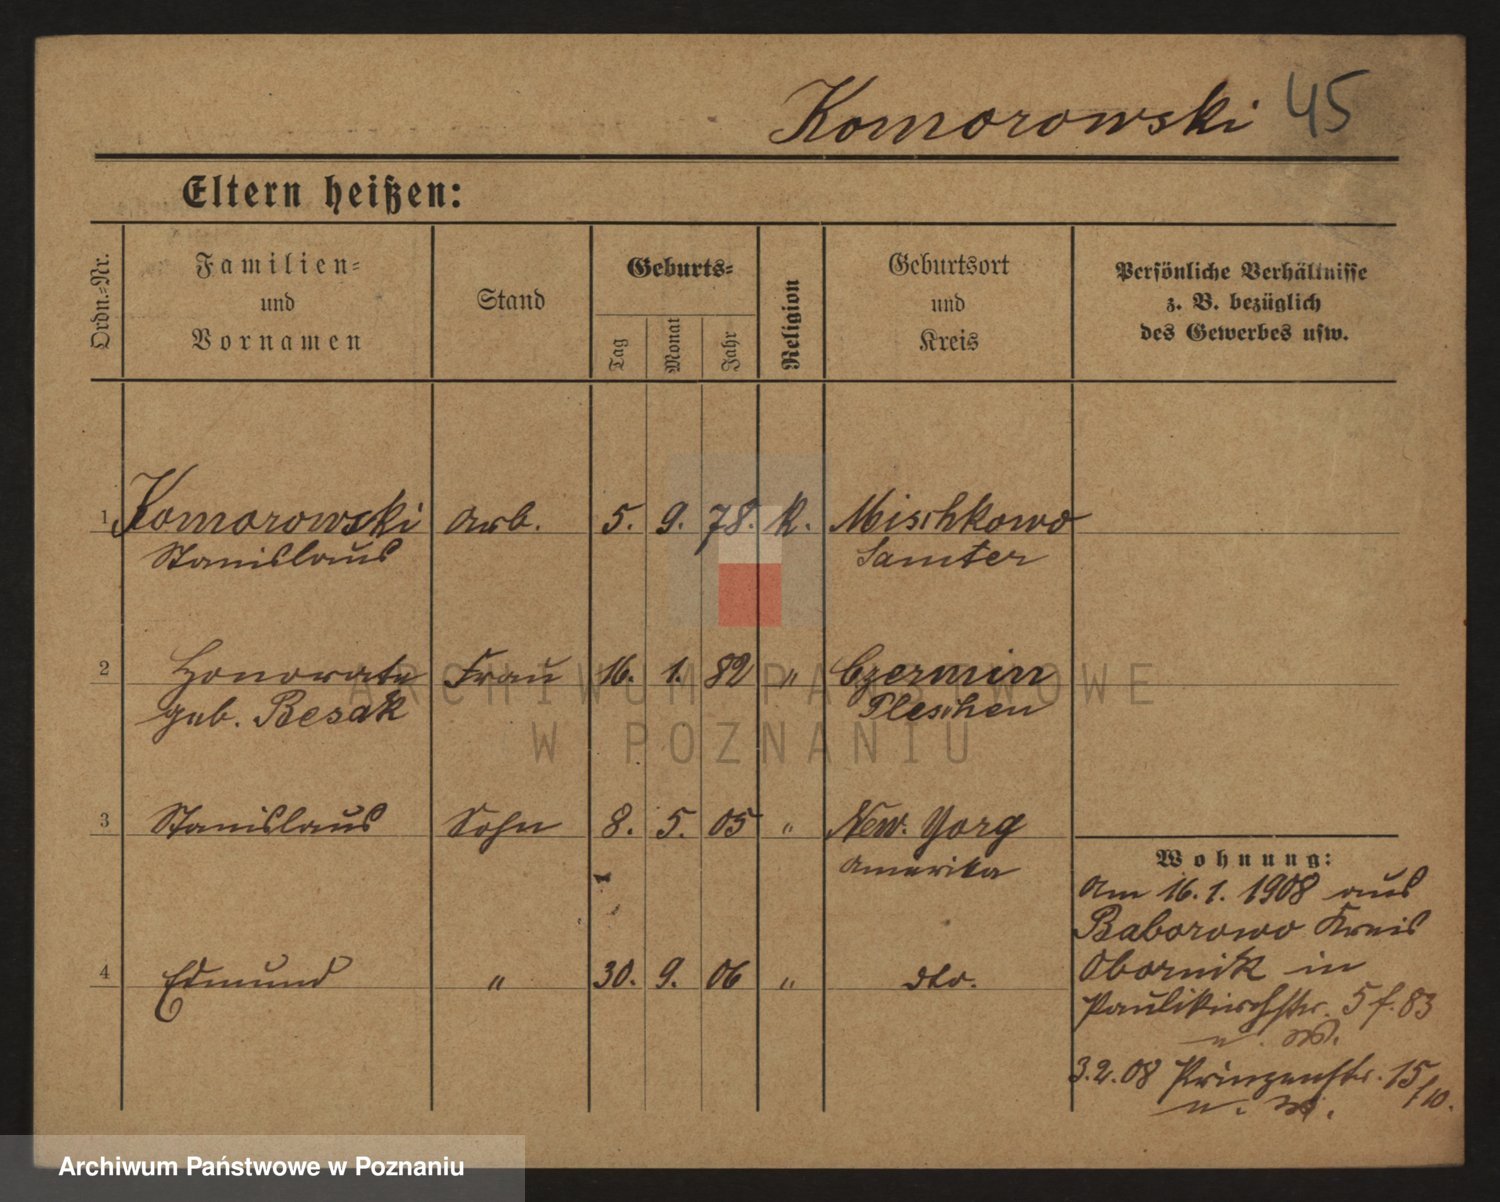 Komorowski 45
Eltern heißen:
Ordn.-Nr.
Familien-
und
Vornamen
Stand
Geburts-
Tag
Monat
Jahr
Religion
Geburtsort
und
Kreis
Persönliche Verhältnisse
z. B. bezüglich
des Gewerbes usw.
1 Komorowski Arb. 5. 9. 78. K. Mischkowo
Stanislaus Samter
2 Honorata Frau 16. 1. 82 " Czermin
geb. Besak Pleschen
3 Stanislaus Sohn 8. 5. 05 " New. Yorg
Amerika
4 Edmund " 30. 9. 06 " dto.
Wohnung:
Am 16.1.1908 aus
Baborowo Kreis
Obornik in
Paulikirchstr. 5 f. 83
n. W.
3.2.08 Prinzenstr. 15/10.
n. W.
ARCHIWUM PAŃSTWOWE
W POZNANIU
Archiwum Państwowe w Poznaniu